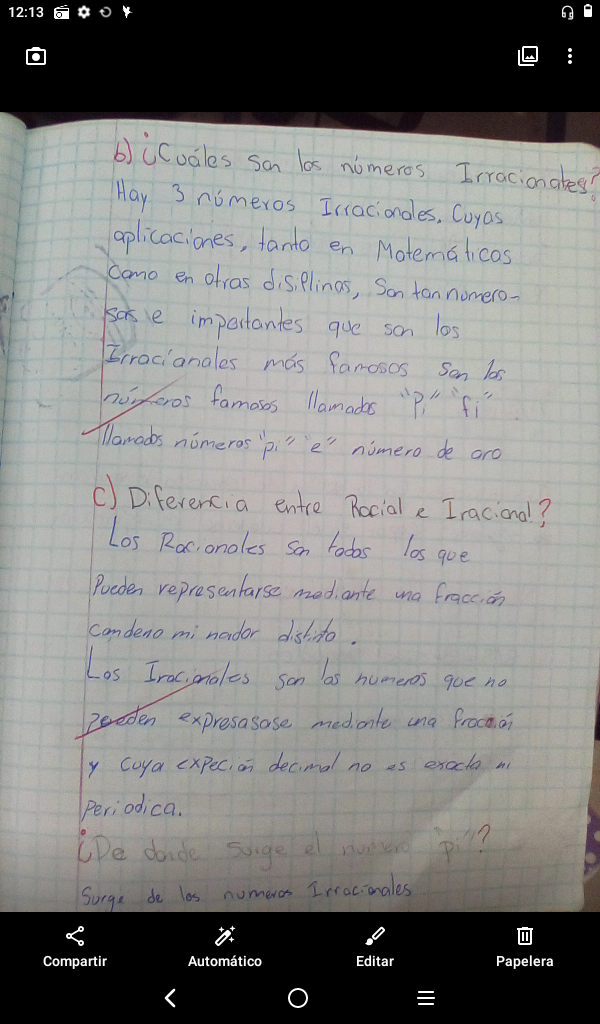 12:13
b) ¿Cuáles son los números Irracionales?
Hay 3 números Irracionales, Cuyas
aplicaciones, tanto en Matemáticas
Como en otras disiplinas, Son tan numero-
sas e importantes que son los
Irracionales más famosos son los
números famosos llamados "Pi" "fi"
llamados números "pi" "e" número de oro
c) Diferencia entre Racial e Iracional?
Los Racionales son todos los que
Pueden representarse mediante una fracción
con deno mi nador distito.
Los Iracionales son los numeros que no
pereden expresasase mediante una fracción
y cuya expeción decimal no es exacta ni
Periodica.
¿De donde surge el numero "pi"?
Surge de los numeros Irracionales
Compartir
Automático
Editar
Papelera